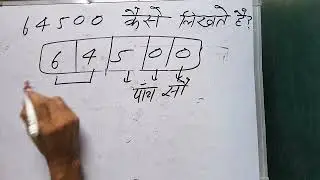 64500 कैसे लिखते है?
6 4 5 0 0
पाँच सौ